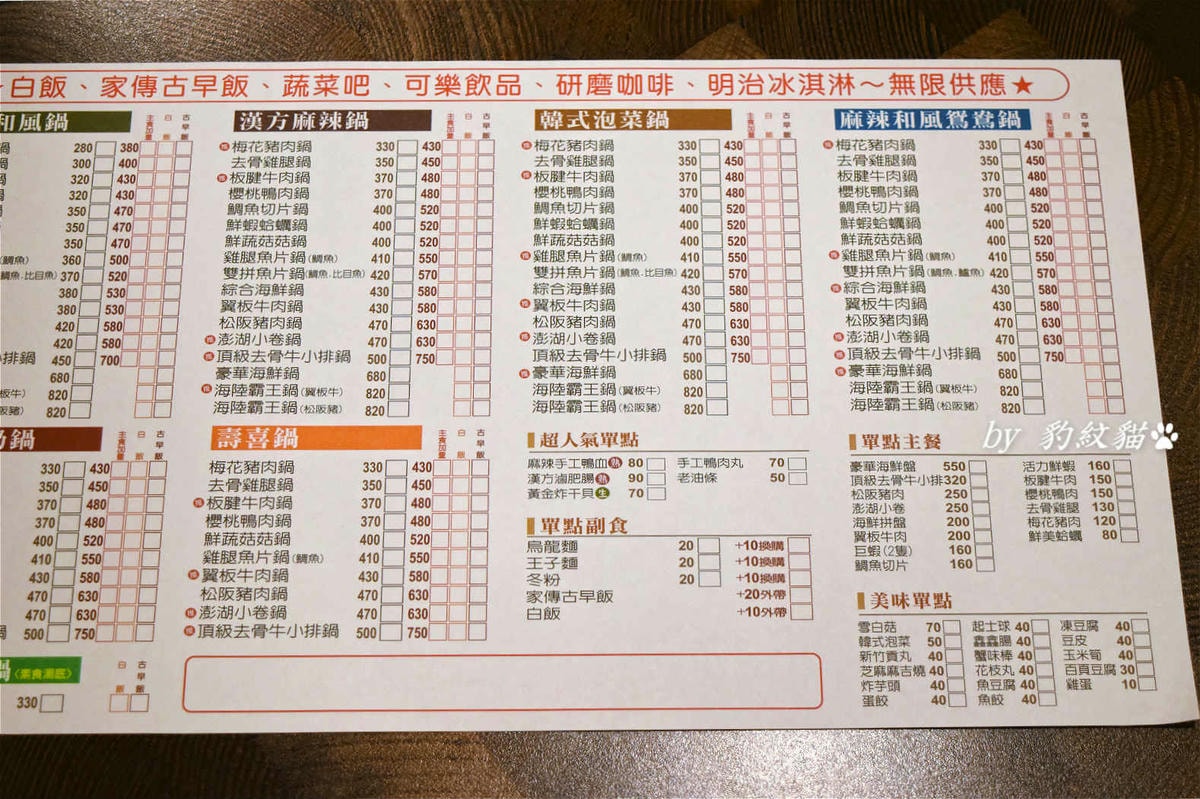 白飯、家傳古早飯、蔬菜吧、可樂飲品、研磨咖啡、明治冰淇淋～無限供應★
和風鍋 主食加量 白飯 古早飯
鍋 280 380
300 400
320 430
320 430
350 470
350 470
350 470
(鯛魚) 360 500
(鯛魚.比目魚) 370 520
380 530
380 530
420 580
420 580
小排鍋 450 700
680
(翼板牛) 820
(松阪豬) 820
漢方麻辣鍋 主食加量 白飯 古早飯
推 梅花豬肉鍋 330 430
去骨雞腿鍋 350 450
推 板腱牛肉鍋 370 480
櫻桃鴨肉鍋 370 480
鯛魚切片鍋 400 520
鮮蝦蛤蠣鍋 400 520
鮮蔬菇菇鍋 400 520
雞腿魚片鍋(鯛魚) 410 550
雙拼魚片鍋(鯛魚.比目魚) 420 570
綜合海鮮鍋 430 580
翼板牛肉鍋 430 580
松阪豬肉鍋 470 630
推 澎湖小卷鍋 470 630
推 頂級去骨牛小排鍋 500 750
豪華海鮮鍋 680
推 海陸霸王鍋(翼板牛) 820
海陸霸王鍋(松阪豬) 820
韓式泡菜鍋 主食加量 白飯 古早飯
推 梅花豬肉鍋 330 430
去骨雞腿鍋 350 450
推 板腱牛肉鍋 370 480
櫻桃鴨肉鍋 370 480
鯛魚切片鍋 400 520
鮮蝦蛤蠣鍋 400 520
鮮蔬菇菇鍋 400 520
推 雞腿魚片鍋(鯛魚) 410 550
雙拼魚片鍋(鯛魚.比目魚) 420 570
綜合海鮮鍋 430 580
推 翼板牛肉鍋 430 580
松阪豬肉鍋 470 630
推 澎湖小卷鍋 470 630
頂級去骨牛小排鍋 500 750
推 豪華海鮮鍋 680
海陸霸王鍋(翼板牛) 820
海陸霸王鍋(松阪豬) 820
麻辣和風鴛鴦鍋 主食加量 白飯 古早飯
推 梅花豬肉鍋 330 430
去骨雞腿鍋 350 450
板腱牛肉鍋 370 480
櫻桃鴨肉鍋 370 480
鯛魚切片鍋 400 520
鮮蝦蛤蠣鍋 400 520
鮮蔬菇菇鍋 400 520
推 雞腿魚片鍋(鯛魚) 410 550
雙拼魚片鍋(鯛魚.鱸魚) 420 570
推 綜合海鮮鍋 430 580
翼板牛肉鍋 430 580
松阪豬肉鍋 470 630
推 澎湖小卷鍋 470 630
推 頂級去骨牛小排鍋 500 750
推 豪華海鮮鍋 680
海陸霸王鍋(翼板牛) 820
海陸霸王鍋(松阪豬) 820
鍋 主食加量 白飯 古早飯
330 430
350 450
370 480
370 480
400 520
410 550
430 580
470 630
470 630
鍋 500 750
鍋〈素食湯底〉 白飯 古早飯
330
壽喜鍋 主食加量 白飯 古早飯
梅花豬肉鍋 330 430
去骨雞腿鍋 350 450
推 板腱牛肉鍋 370 480
櫻桃鴨肉鍋 370 480
鮮蔬菇菇鍋 400 520
雞腿魚片鍋(鯛魚) 410 550
推 翼板牛肉鍋 430 580
松阪豬肉鍋 470 630
推 澎湖小卷鍋 470 630
推 頂級去骨牛小排鍋 500 750
超人氣單點
麻辣手工鴨血 熟 80 手工鴨肉丸 70
漢方滷肥腸 熟 90 老油條 50
黃金炸干貝 生 70
單點副食
烏龍麵 20 +10換購
王子麵 20 +10換購
冬粉 20 +10換購
家傳古早飯 +20外帶
白飯 +10外帶
單點主餐
豪華海鮮盤 550 活力鮮蝦 160
頂級去骨牛小排 320 板腱牛肉 150
松阪豬肉 250 櫻桃鴨肉 150
澎湖小卷 250 去骨雞腿 130
海鮮拼盤 200 梅花豬肉 120
翼板牛肉 200 鮮美蛤蠣 80
巨蝦(2隻) 160
鯛魚切片 160
美味單點
雪白菇 70 起士球 40 凍豆腐 40
韓式泡菜 50 鑫鑫腸 40 豆皮 40
新竹貢丸 40 蟹味棒 40 玉米筍 40
芝麻麻吉燒 40 花枝丸 40 百頁豆腐 30
炸芋頭 40 魚豆腐 40 雞蛋 10
蛋餃 40 魚餃 40
by 豹紋貓